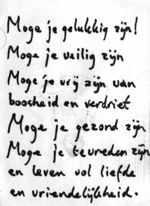 Moge je gelukkig zijn!
Moge je veilig zijn
Moge je vrij zijn van
boosheid en verdriet
Moge je gezond zijn
Moge je tevreden zijn
en leven vol liefde
en vriendelijkheid.